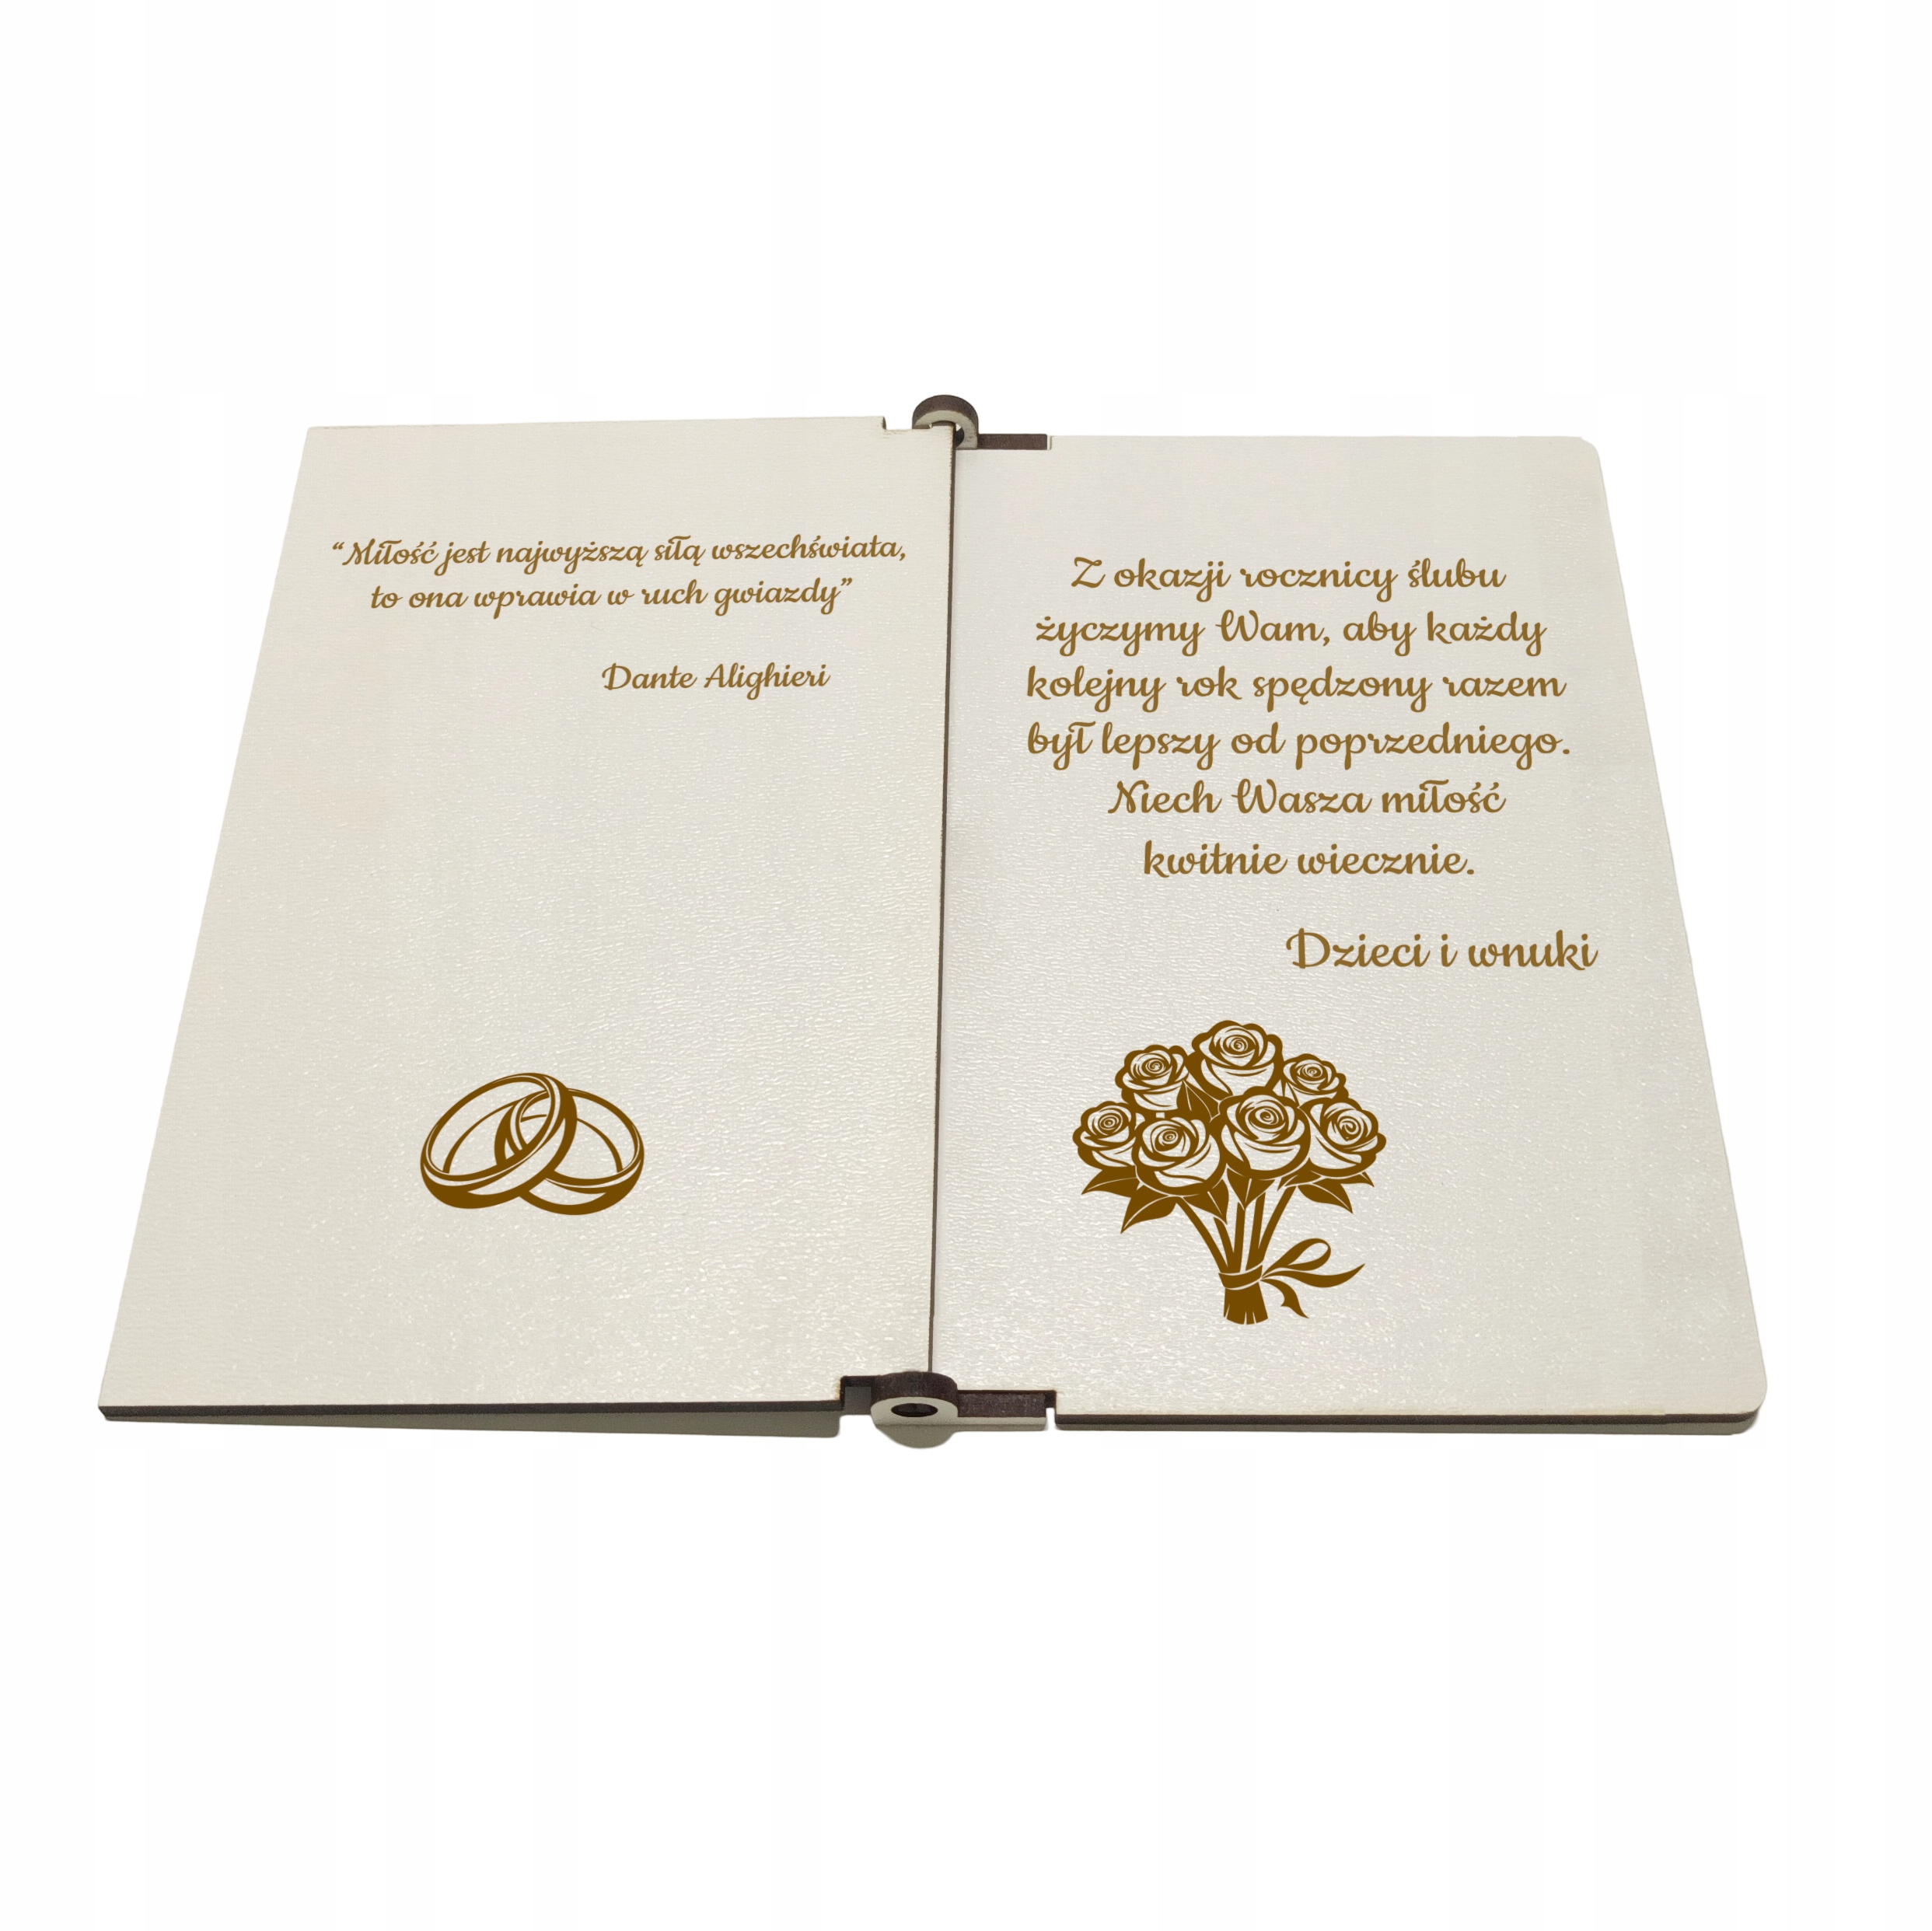 “Miłość jest najwyższą siłą wszechświata,
to ona wprawia w ruch gwiazdy”
Dante Alighieri
Z okazji rocznicy ślubu
życzymy Wam, aby każdy
kolejny rok spędzony razem
był lepszy od poprzedniego.
Niech Wasza miłość
kwitnie wiecznie.
Dzieci i wnuki